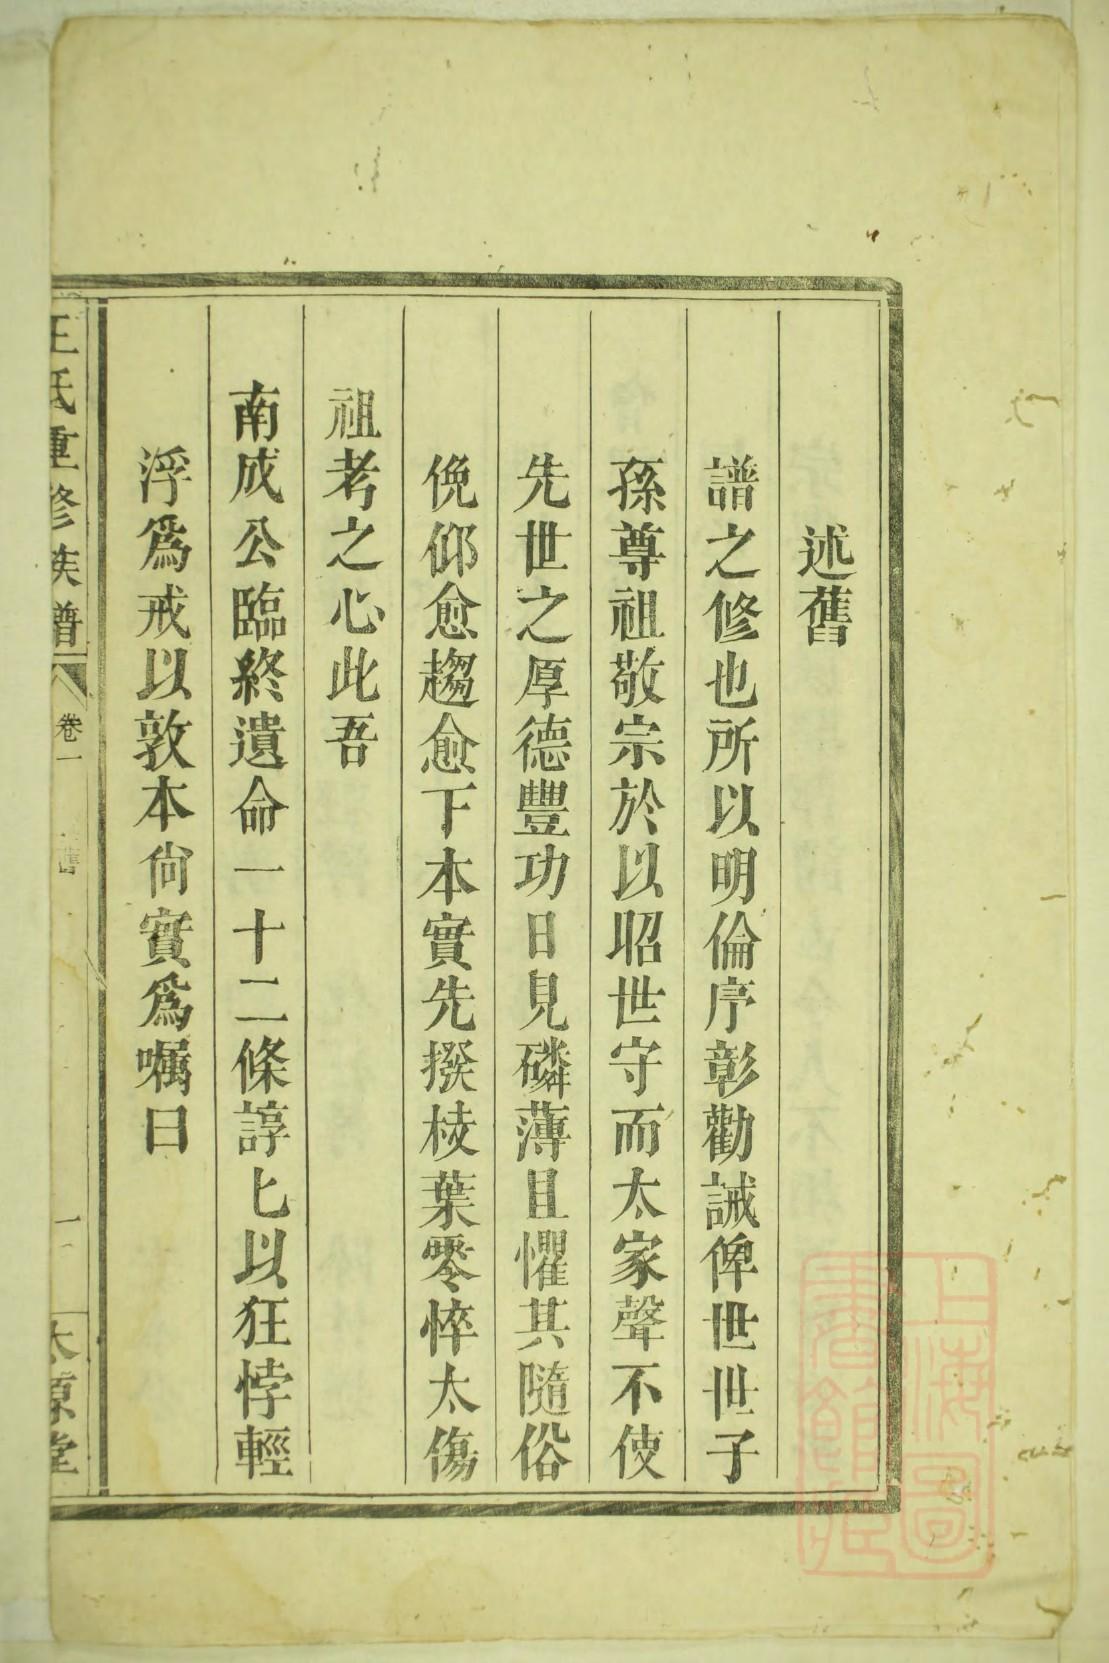 述舊
譜之修也所以明倫序彰勸誡俾世世子
孫尊祖敬宗於以昭世守而太家聲不使
先世之厚德豐功日見磷薄且懼其隨俗
俛仰愈趨愈下本實先撥棱葉零悴太傷
祖考之心此吾
南成公臨終遺命一十二條諄匕以狂悖輕
浮為戒以敦本尙實為囑曰
王氏重修族譜
卷一
舊
一
太原堂
上海圖
書館藏